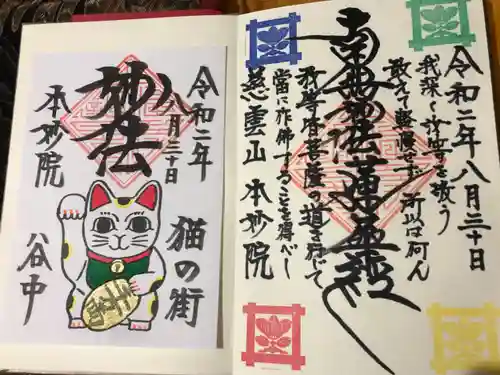 令和二年八月三十日
我深く汝等を敬う
敢えて軽慢せず 所以は何ん
南無妙法蓮華経
汝等皆菩薩の道を行じて
當に作佛することを得べし
慈雲山 本妙院
令和二年
八月三十日
妙法
本妙院
猫の街
谷中